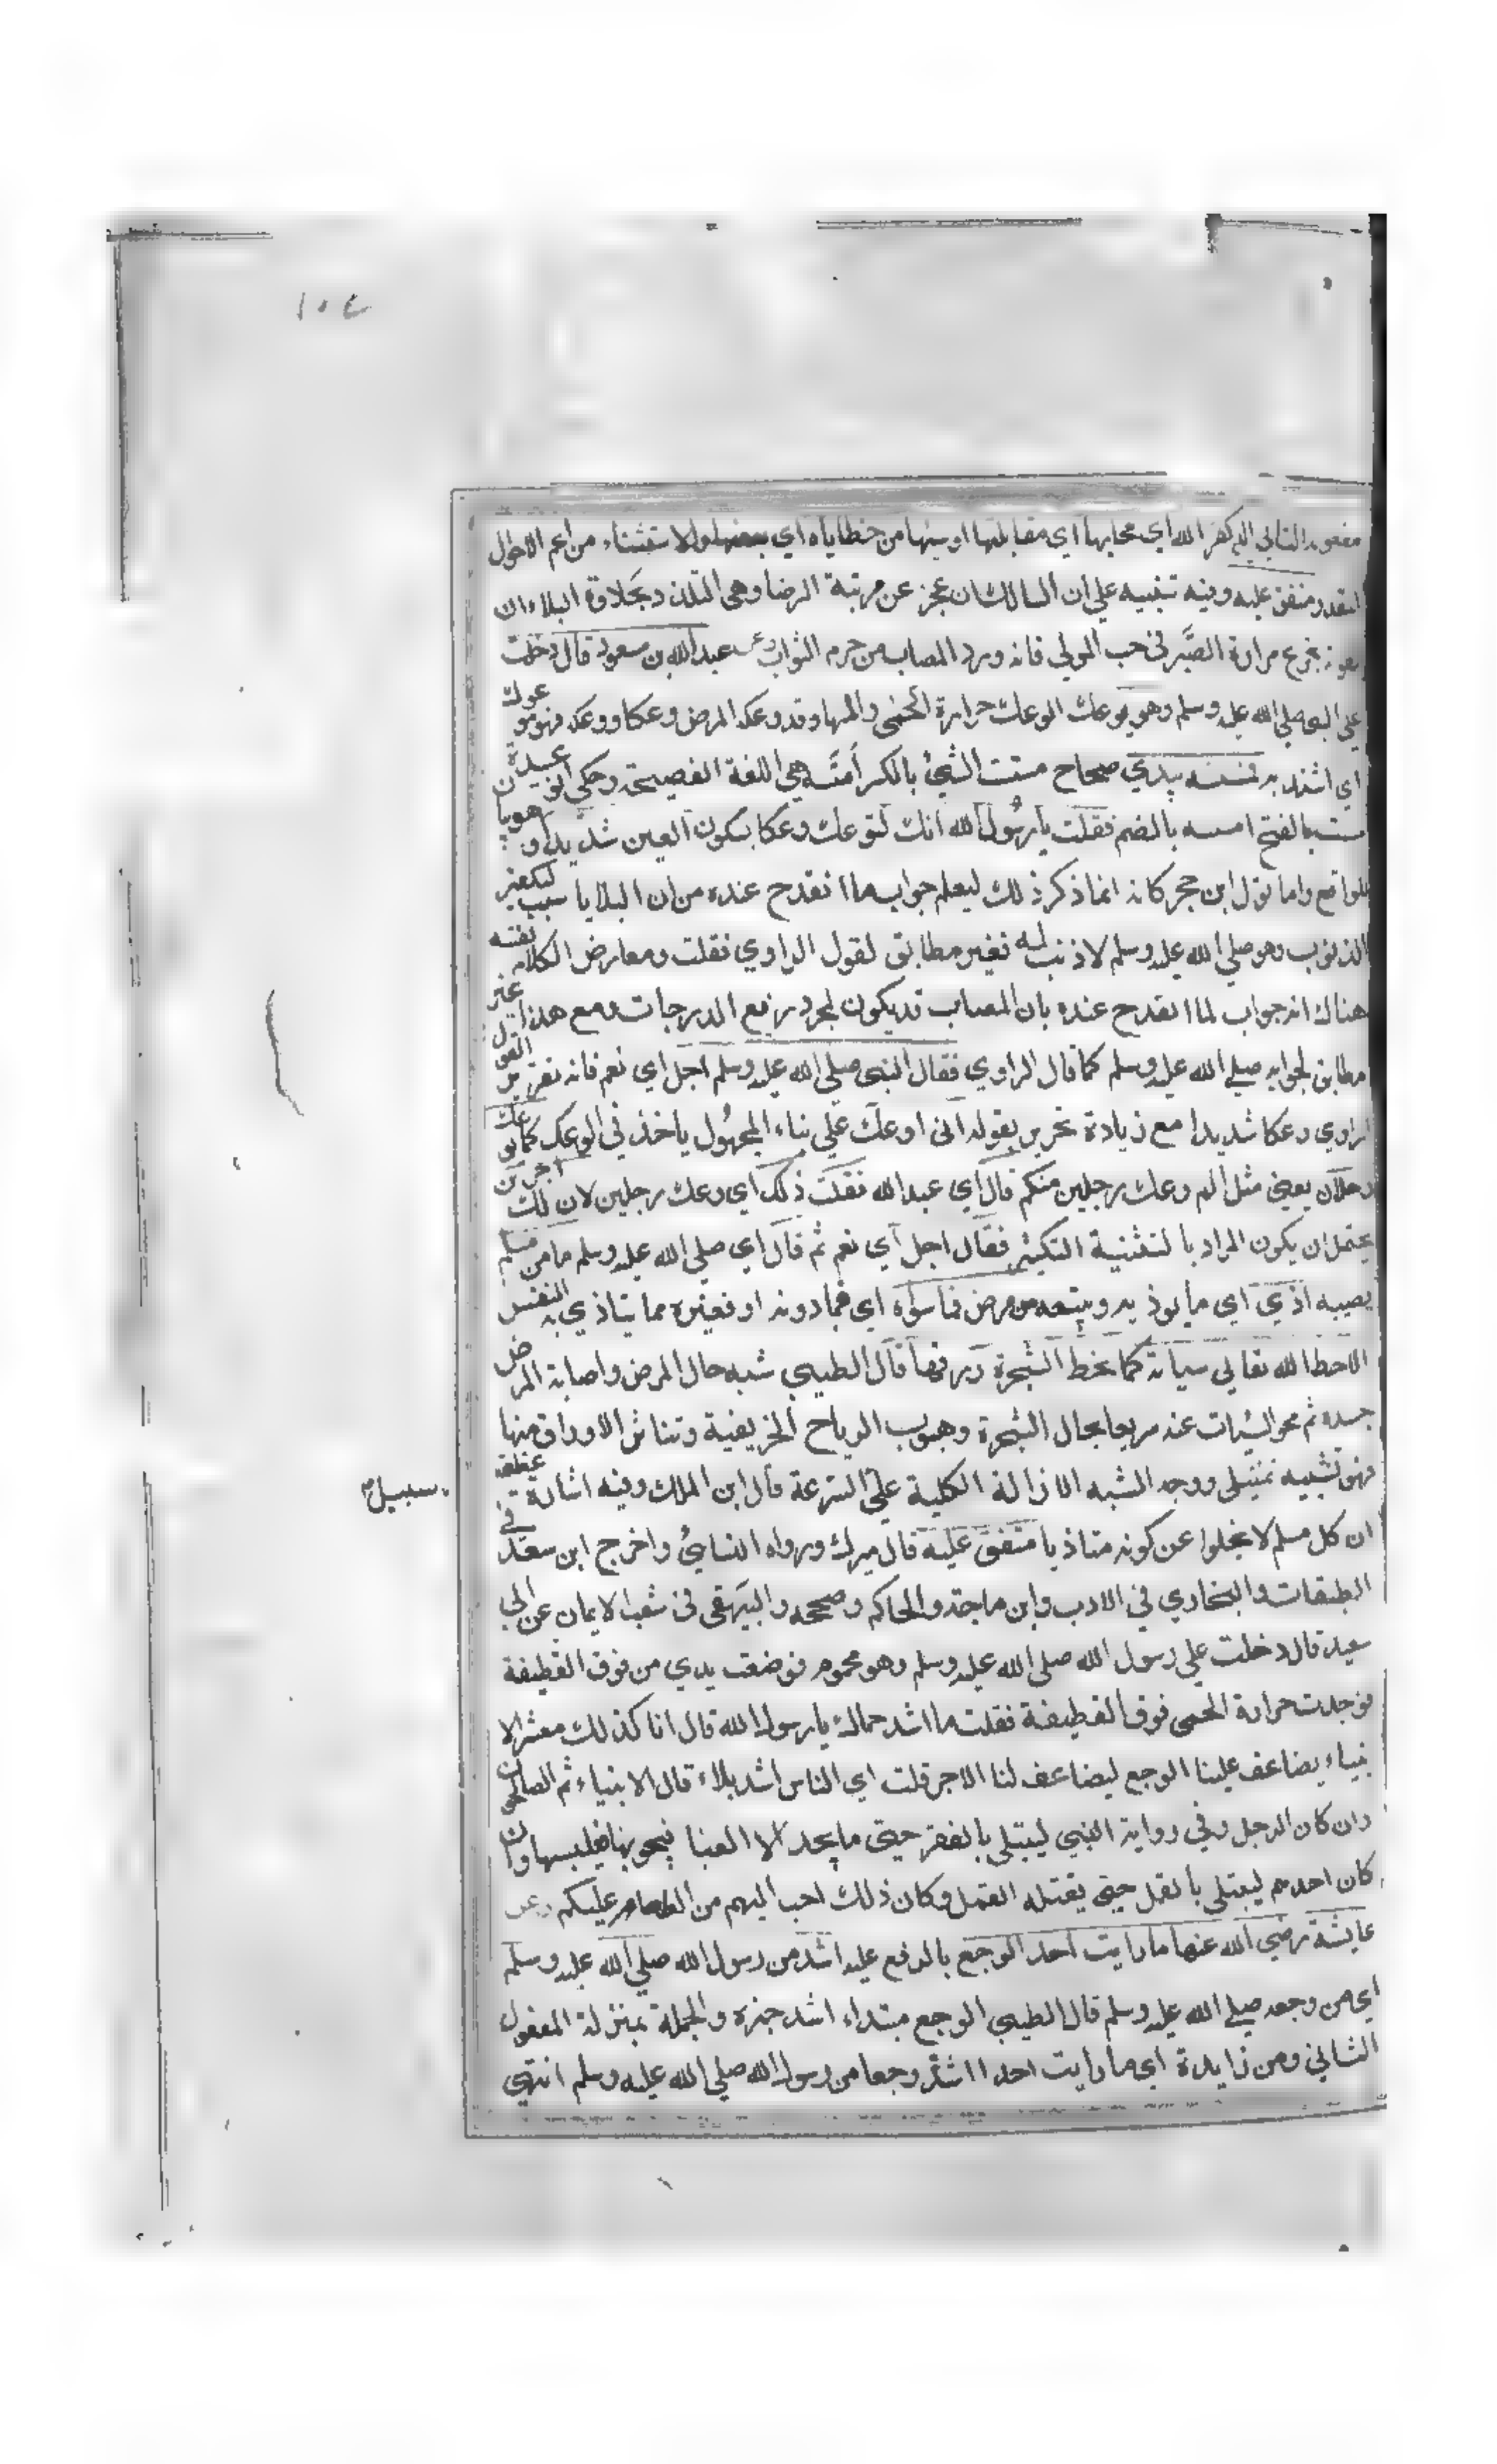 ١٠٤
مفعوله الثاني الا كفر الله اي محابها اي مقابلتها او سببها من خطاياه اي بعضها والاستثناء من اعم الاحوال
المقدر متفق عليه وفيه تنبيه علي ان السالك ان عجز عن مرتبة الرضا وهي التلذذ بحلاوة البلاء ان
يفوته تجرع مرارة الصبر في حب المولي فانه ورد المصاب من حرم الثواب وعن عبد الله بن مسعود قال دخلت
علي النبي صلي الله عليه وسلم وهو يوعك الوعك حرارة الحمى والمها وقد وعكه المرض وعكا ووعكه فهو موعوك
اي اشتد به فمسسته بيدي صحاح مسست الشيئ بالكسر أمسّه هي اللغة الفصيحة وحكي ابو عبيدة
مسست بالفتح امسه بالضم فقلت يا رسول الله انك لتوعك وعكا بسكون العين شديدا و
للواقع واما قول ابن حجر كانه انما ذكر ذلك ليعلم جواب ما انقدح عنده من ان البلايا سبب لتكفير
الذنوب وهو صلي الله عليه وسلم لا ذنب له فغير مطابق لقول الراوي فقلت ومعارض الكلام
هناك انه جواب لما انقدح عنده بان المصاب قد يكون لمجرد رفع الدرجات ومع هذا غير
مطابق لجوابه صلي الله عليه وسلم كما قال الراوي فقال النبي صلي الله عليه وسلم اجل اي نعم فانه تقرير القول
الراوي وعكا شديدا مع زيادة تحرير بقوله اني اوعك علي بناء المجهول ياخذني الوعك كما يوعك
رجلان يعني مثل الم وعك رجلين منكم قال اي عبد الله فقلت ذلك اي وعك رجلين لان لك اجرين
يحتمل ان يكون المراد بالتثنية التكثير فقال اجل اي نعم ثم قال اي صلي الله عليه وسلم ما من مسلم
يصيبه اذي اي ما يوذيه ويتعبه من مرض فما سواه اي فما دونه او فغيره مما يتاذي به النفس
الا حط الله تعالي سياته كما تحط الشجرة ورقها قال الطيبي شبه حال المرض واصابة المرض
جسده ثم محو السيئات عنه سريعا بحال الشجرة وهبوب الرياح الخريفية وتناثر الاوراق منها
فهو تشبيه تمثيلي ووجه الشبه الازالة الكلية علي السرعة قال ابن الملك وفيه اشارة عظيمة
سبيل
ان كل مسلم لا يخلوا عن كونه متاذيا متفق عليه قال ميرك ورواه النسايئ واخرج ابن سعد في
الطبقات والبخاري في الادب وابن ماجة والحاكم وصححه والبيهقي في شعب الايمان عن ابي
سعيد قال دخلت علي رسول الله صلي الله عليه وسلم وهو محموم فوضعت يدي من فوق القطيفة
فوجدت حرارة الحمى فوق القطيفة فقلت ما اشد حماك يا رسول الله قال انا كذلك معشر الا
نبياء يضاعف علينا الوجع ليضاعف لنا الاجر قلت اي الناس اشد بلاء قال الانبياء ثم الصالحون
وان كان الرجل وفي رواية النبي ليبتلي بالفقر حيتي ما يجد الا العبا فيجوبها فيلبسها وان
كان احدهم ليبتلي بالقمل حيتي يقتله القمل وكان ذلك احب اليهم من العطاء عليكم وعن
عايشة رضي الله عنها ما رايت احد الوجع بالرفع عليه اشد من رسول الله صلي الله عليه وسلم
اي من وجعه صلي الله عليه وسلم قال الطيبي الوجع مبتداء اشد خبره والجملة بمنزلة المفعول
الثاني ومن زايدة اي ما رايت احدا اشد وجعا من رسول الله صلي الله عليه وسلم انتهي